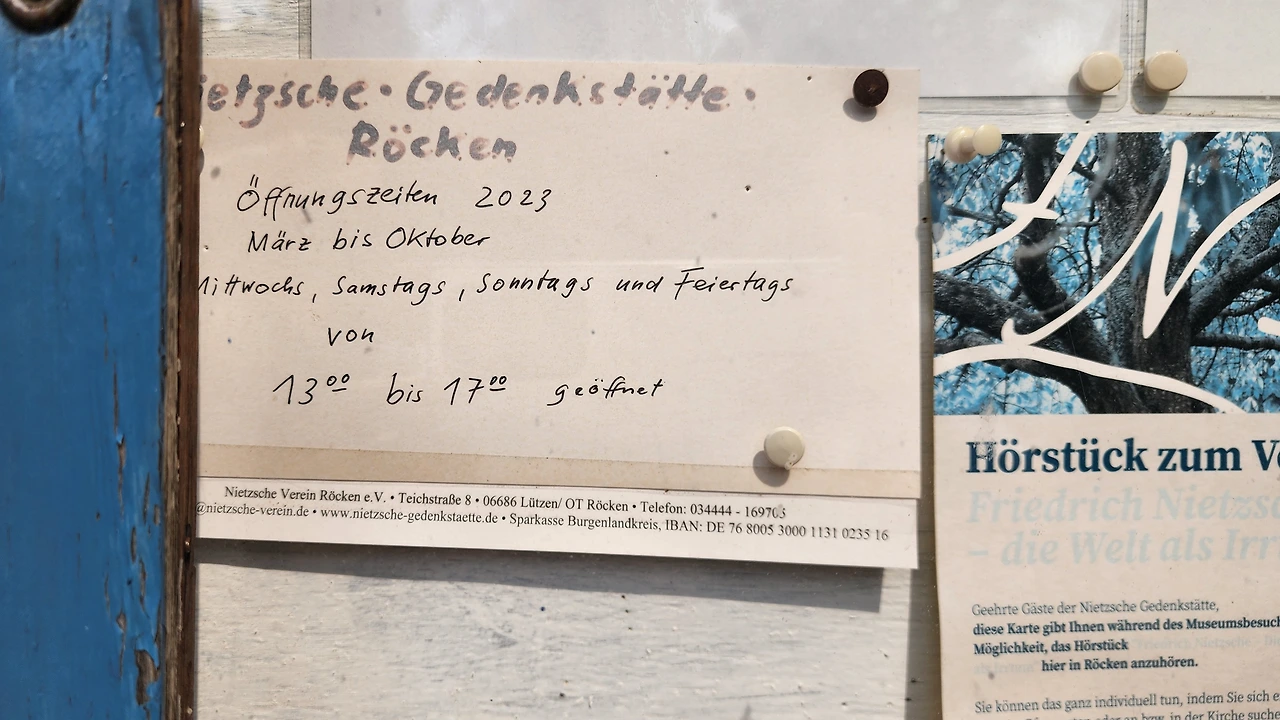 Nietzsche · Gedenkstätte ·
Röcken
Öffnungszeiten 2023
März bis Oktober
Mittwochs, Samstags, Sonntags und Feiertags
von
13⁰⁰ bis 17⁰⁰ geöffnet
Nietzsche Verein Röcken e.V. • Teichstraße 8 • 06686 Lützen/ OT Röcken • Telefon: 034444 - 169703
@nietzsche-verein.de • www.nietzsche-gedenkstaette.de • Sparkasse Burgenlandkreis, IBAN: DE 76 8005 3000 1131 0235 16
Hörstück zum
Friedrich
– die Welt als
Geehrte Gäste der Nietzsche Gedenkstätte,
diese Karte gibt Ihnen während des Museumsbesuch
Möglichkeit, das Hörstück
hier in Röcken anzuhören.
Sie können das ganz individuell tun, indem Sie sich
bzw. in der Kirche